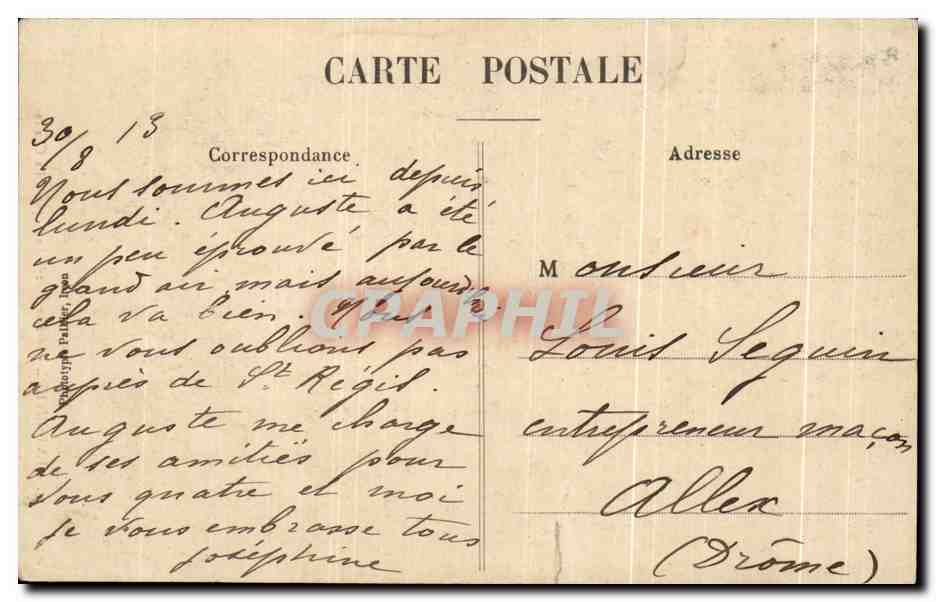 CARTE POSTALE
30/8 13
Correspondance
Nous sommes ici depuis
lundi. Auguste a été
un peu éprouvé par le
grand air mais aujourd'h
cela va bien. Nous
ne vous oublions pas
auprès de St Régis.
Auguste me charge
de ses amitiés pour
vous quatre et moi
je vous embrasse tous
Joséphine
Phototypie
CPAPHIL
Adresse
Monsieur
Louis Seguin
entrepreneur maçon
Allex
(Drôme)